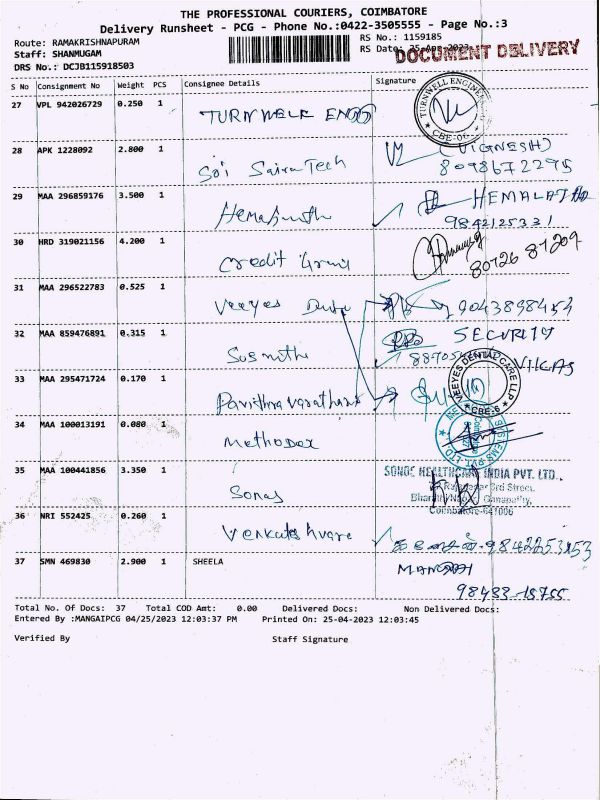 THE PROFESSIONAL COURIERS, COIMBATORE
Delivery Runsheet - PCG - Phone No.:0422-3505555 - Page No.:3
Route: RAMAKRISHNAPURAM
Staff: SHANMUGAM
DRS No.: DCJB115918503
RS No.: 1159185
RS Date: 25-Apr-2023
DOCUMENT DELIVERY
S No Consignment No Weight PCS Consignee Details Signature
27 VPL 942026729 0.250 1 TURNWELL ENGG
TURNWELL ENGINEER
CBE-06
28 APK 1228092 2.800 1 Sri Saira Tech (VIGNESH)
8098672295
29 MAA 296859176 3.500 1 HEMALATHA
9842125331
30 HRD 319021156 4.200 1 Credit
80726 87209
31 MAA 296522783 0.525 1 Veeyes 9043898453
32 MAA 859476891 0.315 1 Susmitha SECURITY
VIKAS
33 MAA 295471724 0.170 1 Pavithra varathara
VEEYES DENTAL CARE LLP
CBE-6
34 MAA 100013191 0.080 1 Methodex
SYSTEMS PVT. LTD
35 MAA 100441856 3.350 1 Sonos
HEALTHCARE INDIA PVT. LTD.,
3rd Street,
Ganapathy,
Coimbatore-641006
36 NRI 552425 0.260 1 Venkateshvara 9842253153
37 SMN 469830 2.900 1 SHEELA
98433-18755
Total No. Of Docs: 37 Total COD Amt: 0.00 Delivered Docs: Non Delivered Docs:
Entered By :MANGAIPCG 04/25/2023 12:03:37 PM Printed On: 25-04-2023 12:03:45
Verified By Staff Signature